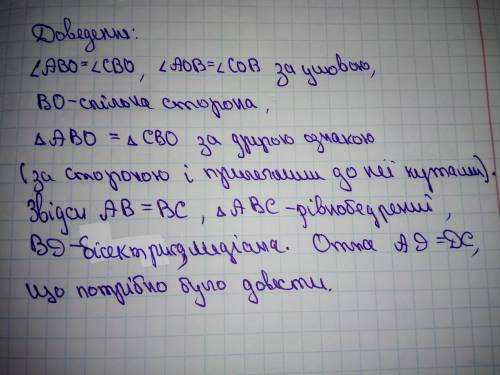 Доведення:
∠ABO=∠CBO, ∠AOB=∠COB за умовою,
BO-спільна сторона,
△ABO = △CBO за другою ознакою
(за стороною і прилеглими до неї кутами).
Звідси AB=BC, △ABC-рівнобедрений,
BD-бісектриса, медіана. Отже AD=DC,
що потрібно було довести.